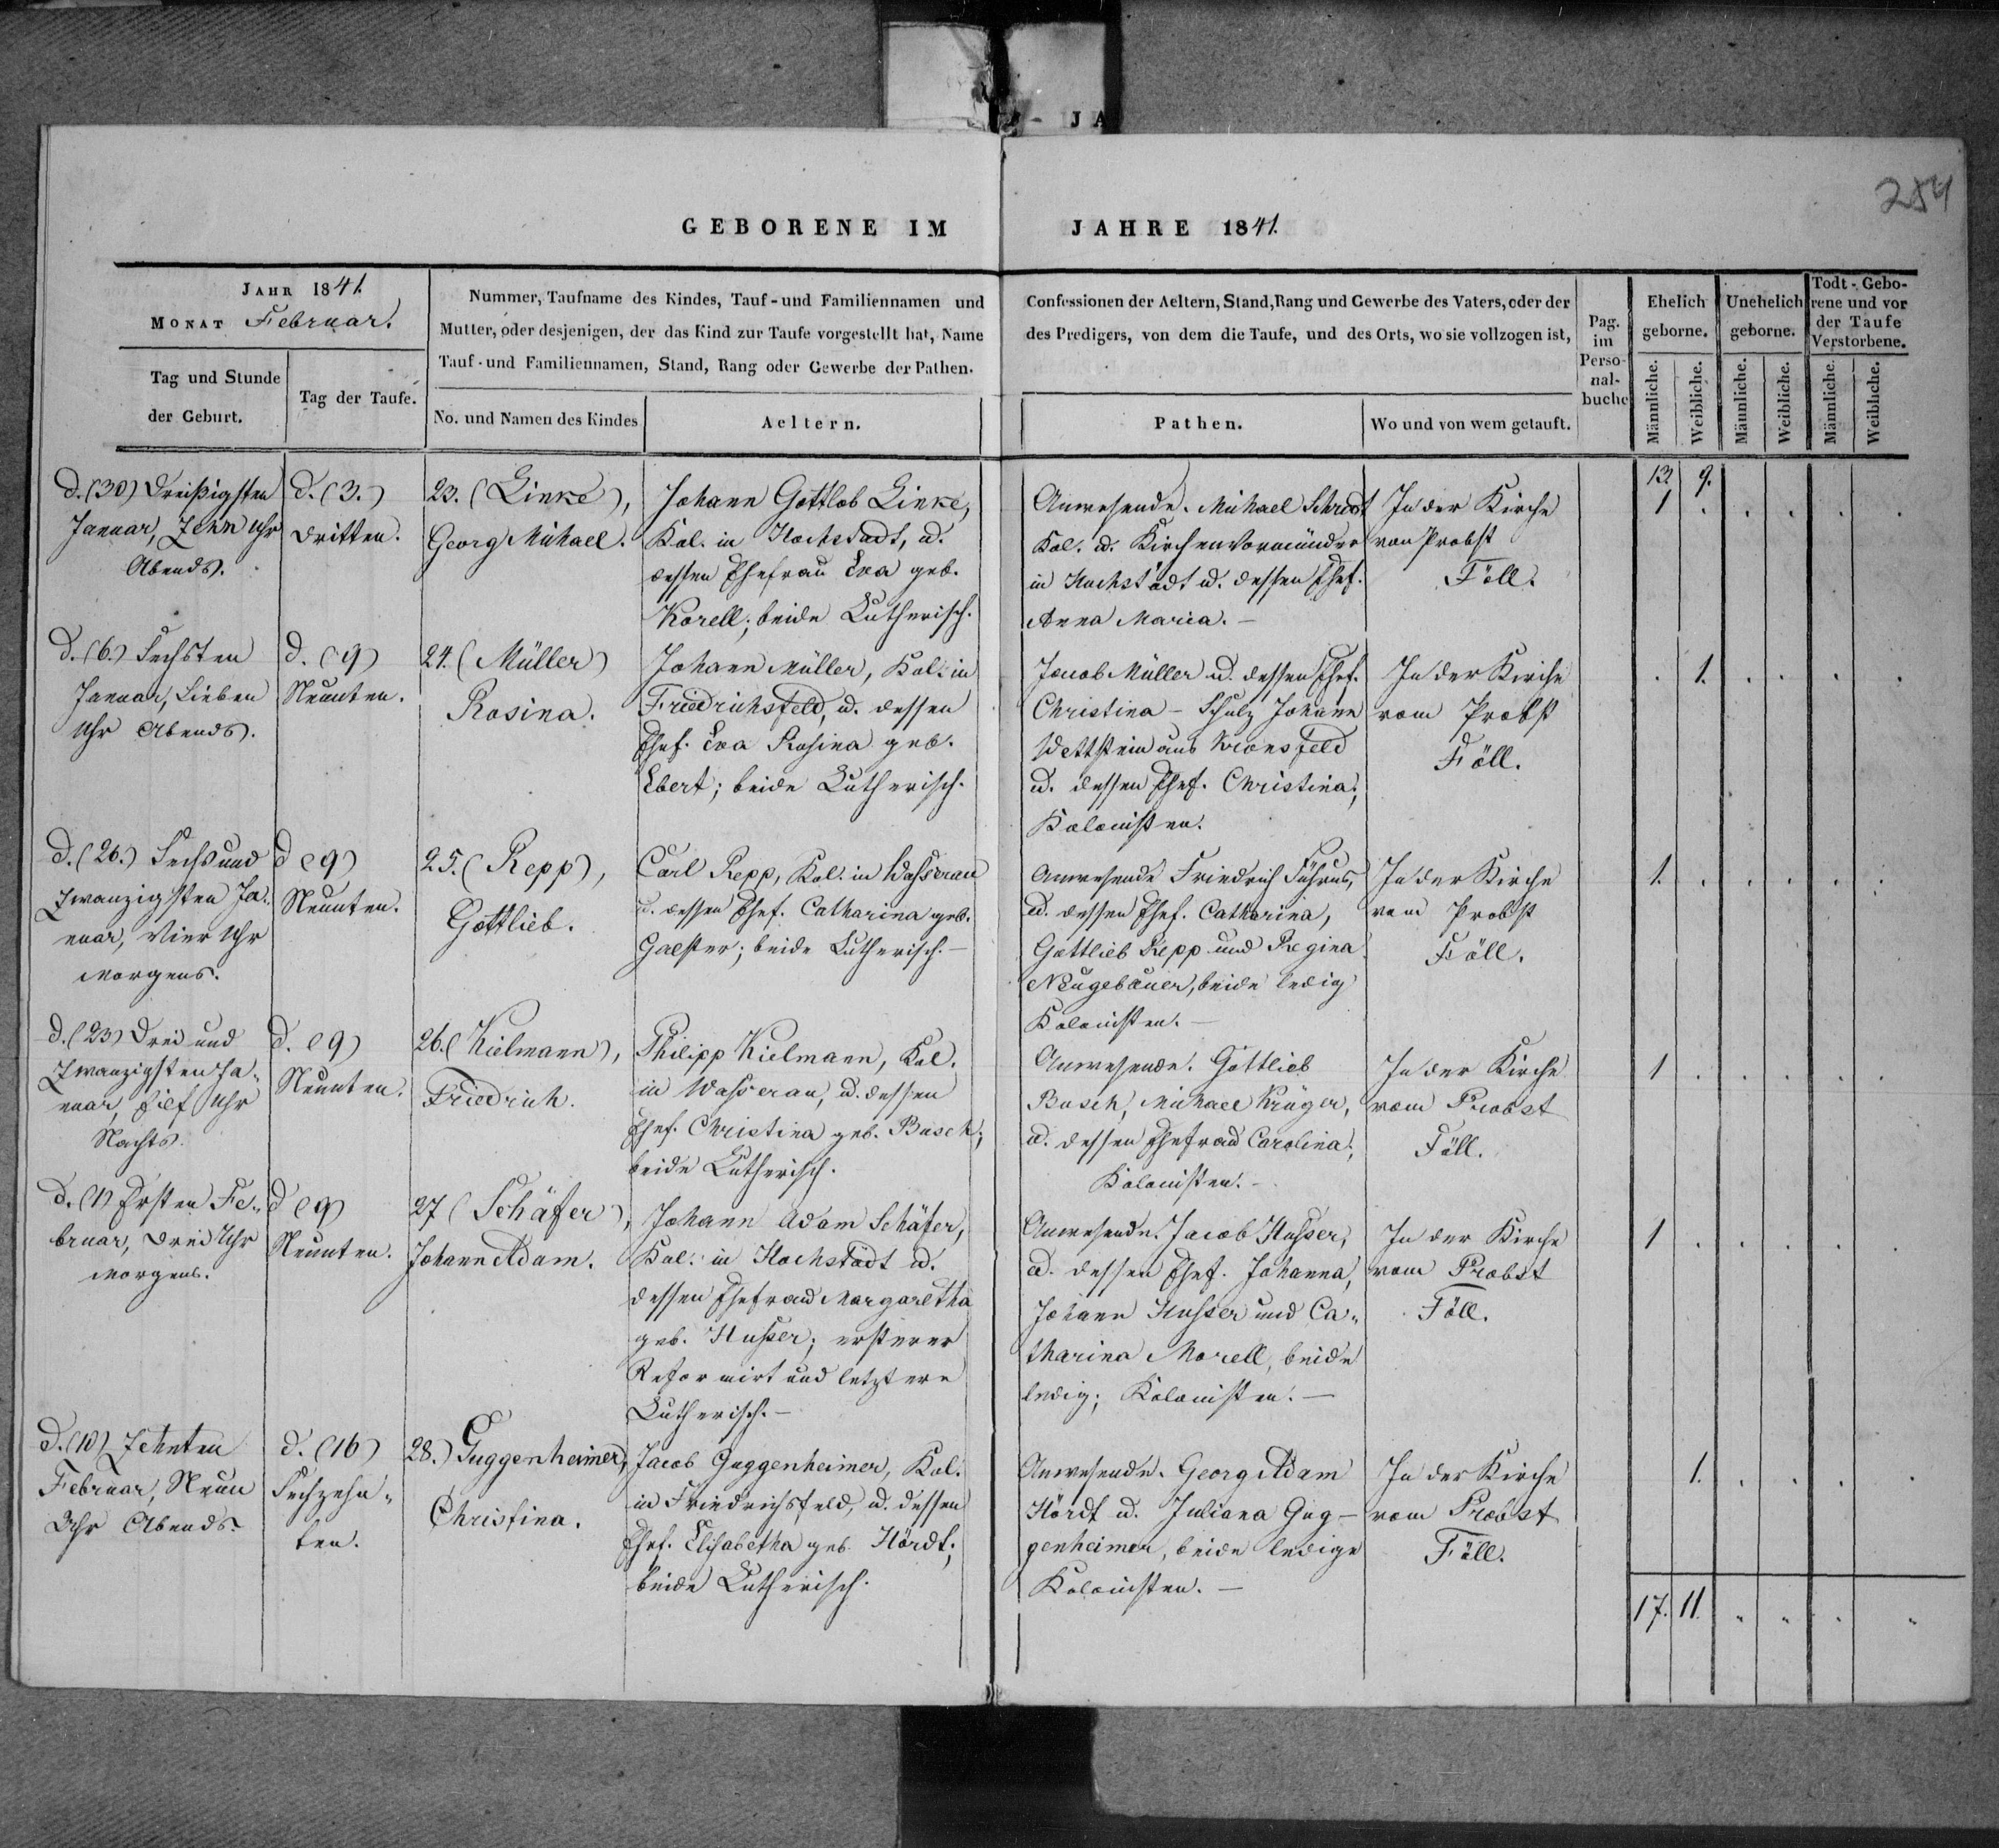 - JA
284
GEBORENE IM JAHRE 1841.
JAHR 1841.
MONAT Februar.
Tag und Stunde
der Geburt.
Tag der Taufe.
Nummer, Taufname des Kindes, Tauf- und Familiennamen und
Mutter, oder desjenigen, der das Kind zur Taufe vorgestellt hat, Name
Tauf- und Familiennamen, Stand, Rang oder Gewerbe der Pathen.
No. und Namen des Kindes
Aeltern.
Confessionen der Aeltern, Stand, Rang und Gewerbe des Vaters, oder der
des Predigers, von dem die Taufe, und des Orts, wo sie vollzogen ist,
Pathen.
Wo und von wem getauft.
Pag.
im
Perso-
nal-
buche
Ehelich
geborne.
Unehelich
geborne.
Todt-Gebo-
rene und vor
der Taufe
Verstorbene.
Männliche.
Weibliche.
Männliche.
Weibliche.
Männliche.
Weibliche.
13. 9.
d. (30) Dreißigsten
Januar, Zehn Uhr
Abends.
d. (3.)
Dritten.
23. (Linke),
Georg Michael.
Johann Gottlob Linke,
Kol. in Hochstädt, u.
dessen Ehefrau Eva geb.
Korell; beide Lutherisch.
Anwesende. Michael
Kol. u. Kirchenvormünder
in Hochstädt u. dessen Ehef.
Anna Maria. –
In der Kirche
von Probst
Föll.
1
d. (6.) Sechsten
Januar, Sieben
Uhr Abends.
d. (9)
Neunten.
24. (Müller)
Rosina.
Johann Müller, Kol. in
Friedrichsfeld, u. dessen
Ehef. Eva Rosina geb.
Ebert; beide Lutherisch.
Jacob Müller u. dessen Ehef.
Christina – Schulz Johann
Wettstein aus Kronsfeld
u. dessen Ehef. Christina,
Kolonisten.
In der Kirche
vom Probst
Föll.
1.
d. (26.) Sechsund
zwanzigsten Ja-
nuar, Vier Uhr
Morgens.
d (9)
Neunten.
25. (Repp),
Gottlieb.
Carl Repp, Kol. in Wasserau
u. dessen Ehef. Catharina geb.
Galster; beide Lutherisch. –
Anwesende Friedrich
u. dessen Ehef. Catharina,
Gottlieb Repp und Regina
Neugebauer, beide ledig
Kolonisten. –
In der Kirche
vom Probst
Föll.
1.
d. (23) Drei und
Zwanzigsten Ja-
nuar, Eilf Uhr
Nachts.
d. (9)
Neunten.
26. (Kielmann),
Friedrich.
Philipp Kielmann, Kol.
in Wasserau, u. dessen
Ehef. Christina geb. Busch;
beide Lutherisch.
Anwesende. Gottlieb
Busch, Michael Krüger,
u. dessen Ehefrau Carolina,
Kolonisten. –
In der Kirche
vom Probst
Föll.
1
d. (1) Ersten Fe-
bruar, Drei Uhr
Morgens.
d (9)
Neunten.
27 (Schäfer),
Johann Adam.
Johann Adam Schäfer,
Kol. in Hochstädt u.
dessen Ehefrau Margaretha
geb. Husser; ersterer
Reformirt und letztere
Lutherisch. –
Anwesende. Jacob Husser,
u. dessen Ehef. Johanna,
Johann Husser und Ca-
tharina Morell, beide
ledig; Kolonisten. –
In der Kirche
vom Probst
Föll.
1
d. (10) Zehnten
Februar, Neun
Uhr Abends.
d. (16)
Sechzehn-
ten.
28.) Guggenheimer,
Christina.
Jacob Guggenheimer, Kol.
in Friedrichsfeld, u. dessen
Ehef. Elisabetha geb. Hördt;
beide Lutherisch.
Anwesende. Georg Adam
Hördt u. Juliana Gug-
genheimer, beide ledige
Kolonisten. –
In der Kirche
vom Probst
Föll.
1.
17. 11.